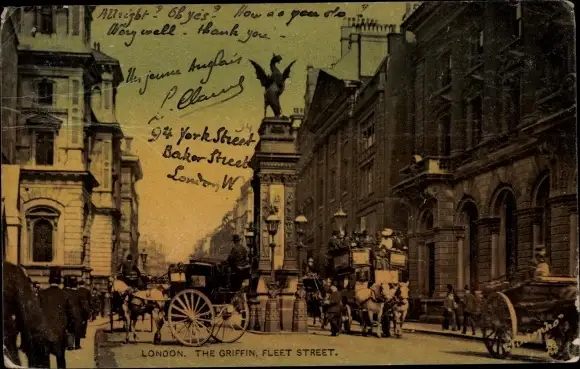 Allright? Oh yes? How do you do?
Very well - thank you.
Un jeune Anglais
P. Clauvel
94 York Street
Baker Street
London W
LONDON. THE GRIFFIN, FLEET STREET.